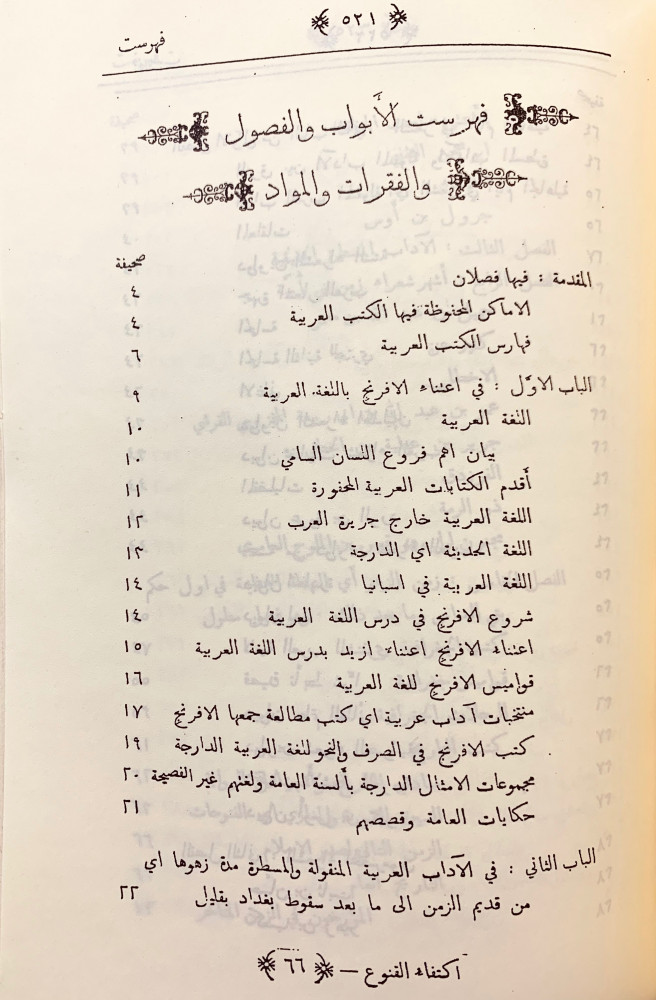 ٥٢١
فهرست
فهرست الأبواب والفصول
والفقرات والمواد
صحيفة
المقدمة : فيها فصلان ٤
الاماكن المحفوظة فيها الكتب العربية ٤
فهارس الكتب العربية ٦
الباب الاوّل : في اعتناء الافرنج باللغة العربية ٩
اللغة العربية ١٠
بيان اهم فروع اللسان السامي ١٠
أقدم الكتابات العربية المحفورة ١١
اللغة العربية خارج جزيرة العرب ١٢
اللغة الحديثة اي الدارجة ١٣
اللغة العربية في اسبانيا ١٤
شروع الافرنج في درس اللغة العربية ١٤
اعتناء الافرنج اعتناء ازيد بدرس اللغة العربية ١٥
قواميس الافرنج للغة العربية ١٦
منتخبات آداب عربية اي كتب مطالعة جمعها الافرنج ١٧
كتب الافرنج في الصرف والنحو للغة العربية الدارجة ١٩
مجموعات الامثال الدارجة بألسنة العامة ولغتهم غير الفصيحة ٢٠
حكايات العامة وقصصهم ٢١
الباب الثاني : في الآداب العربية المنقولة والمسطرة مدة زهوها اي
من قديم الزمن الى ما بعد سقوط بغداد بقليل ٢٢
اكتفاء القنوع — ٦٦